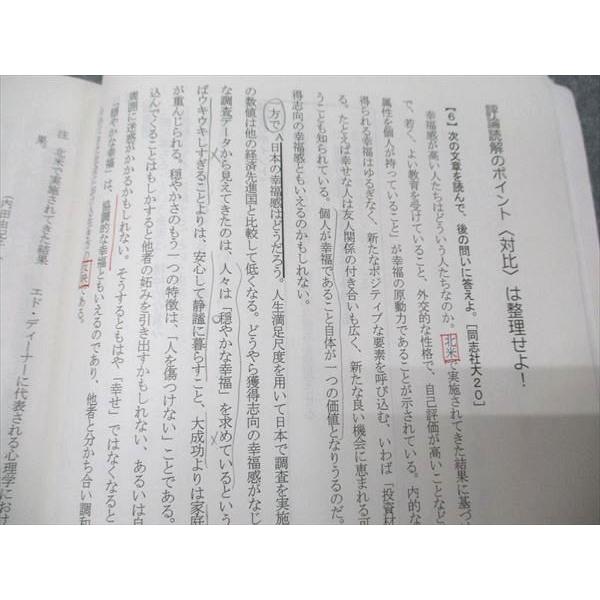 評論読解のポイント〈対比〉は整理せよ!
【6】次の文章を読んで、後の問いに答えよ。[同志社大20]
幸福感が高い人たちはどういう人たちなのか。北米で実施されてきた結果に基づ
で、若く、よい教育を受けていること、外交的な性格で、自己評価が高いことなど、
属性を個人が持っていること」が幸福の原動力であることが示されている。内的な
得られる幸福はゆるぎなく、新たなポジティブな要素を呼び込む、いわば「投資材
る。たとえば幸せな人は友人関係の付き合いも広く、新たな良い機会に恵まれる可
うことも知られている。個人が幸福であること自体が一つの価値となりうるのだ。
得志向の幸福感ともいえるのかもしれない。
一方でA日本の幸福感はどうだろう。人生満足尺度を用いて日本で調査を実施
の数値は他の経済先進国と比較して低くなる。どうやら獲得志向の幸福感がなじ
な調査データから見えてきたのは、人々は「穏やかな幸福」を求めているという
ばウキウキしすぎることよりは、安心して静謐に暮らすこと、大成功よりは家庭
が重んじられる。穏やかさのもう一つの特徴は、「人を傷つけない」ことである。
込んでくることはもしかすると他者の妬みを引き出すかもしれない、あるいは自
周囲に迷惑がかかるかもしれない。そうするともはや「幸せ」ではなくなると
「穏やかな幸福」は、協調的な幸福ともいえるのであり、他者と分かち合い調和
である。
注 北米で実施されてきた結果
エド・ディーナーに代表される心理学におけ
果。